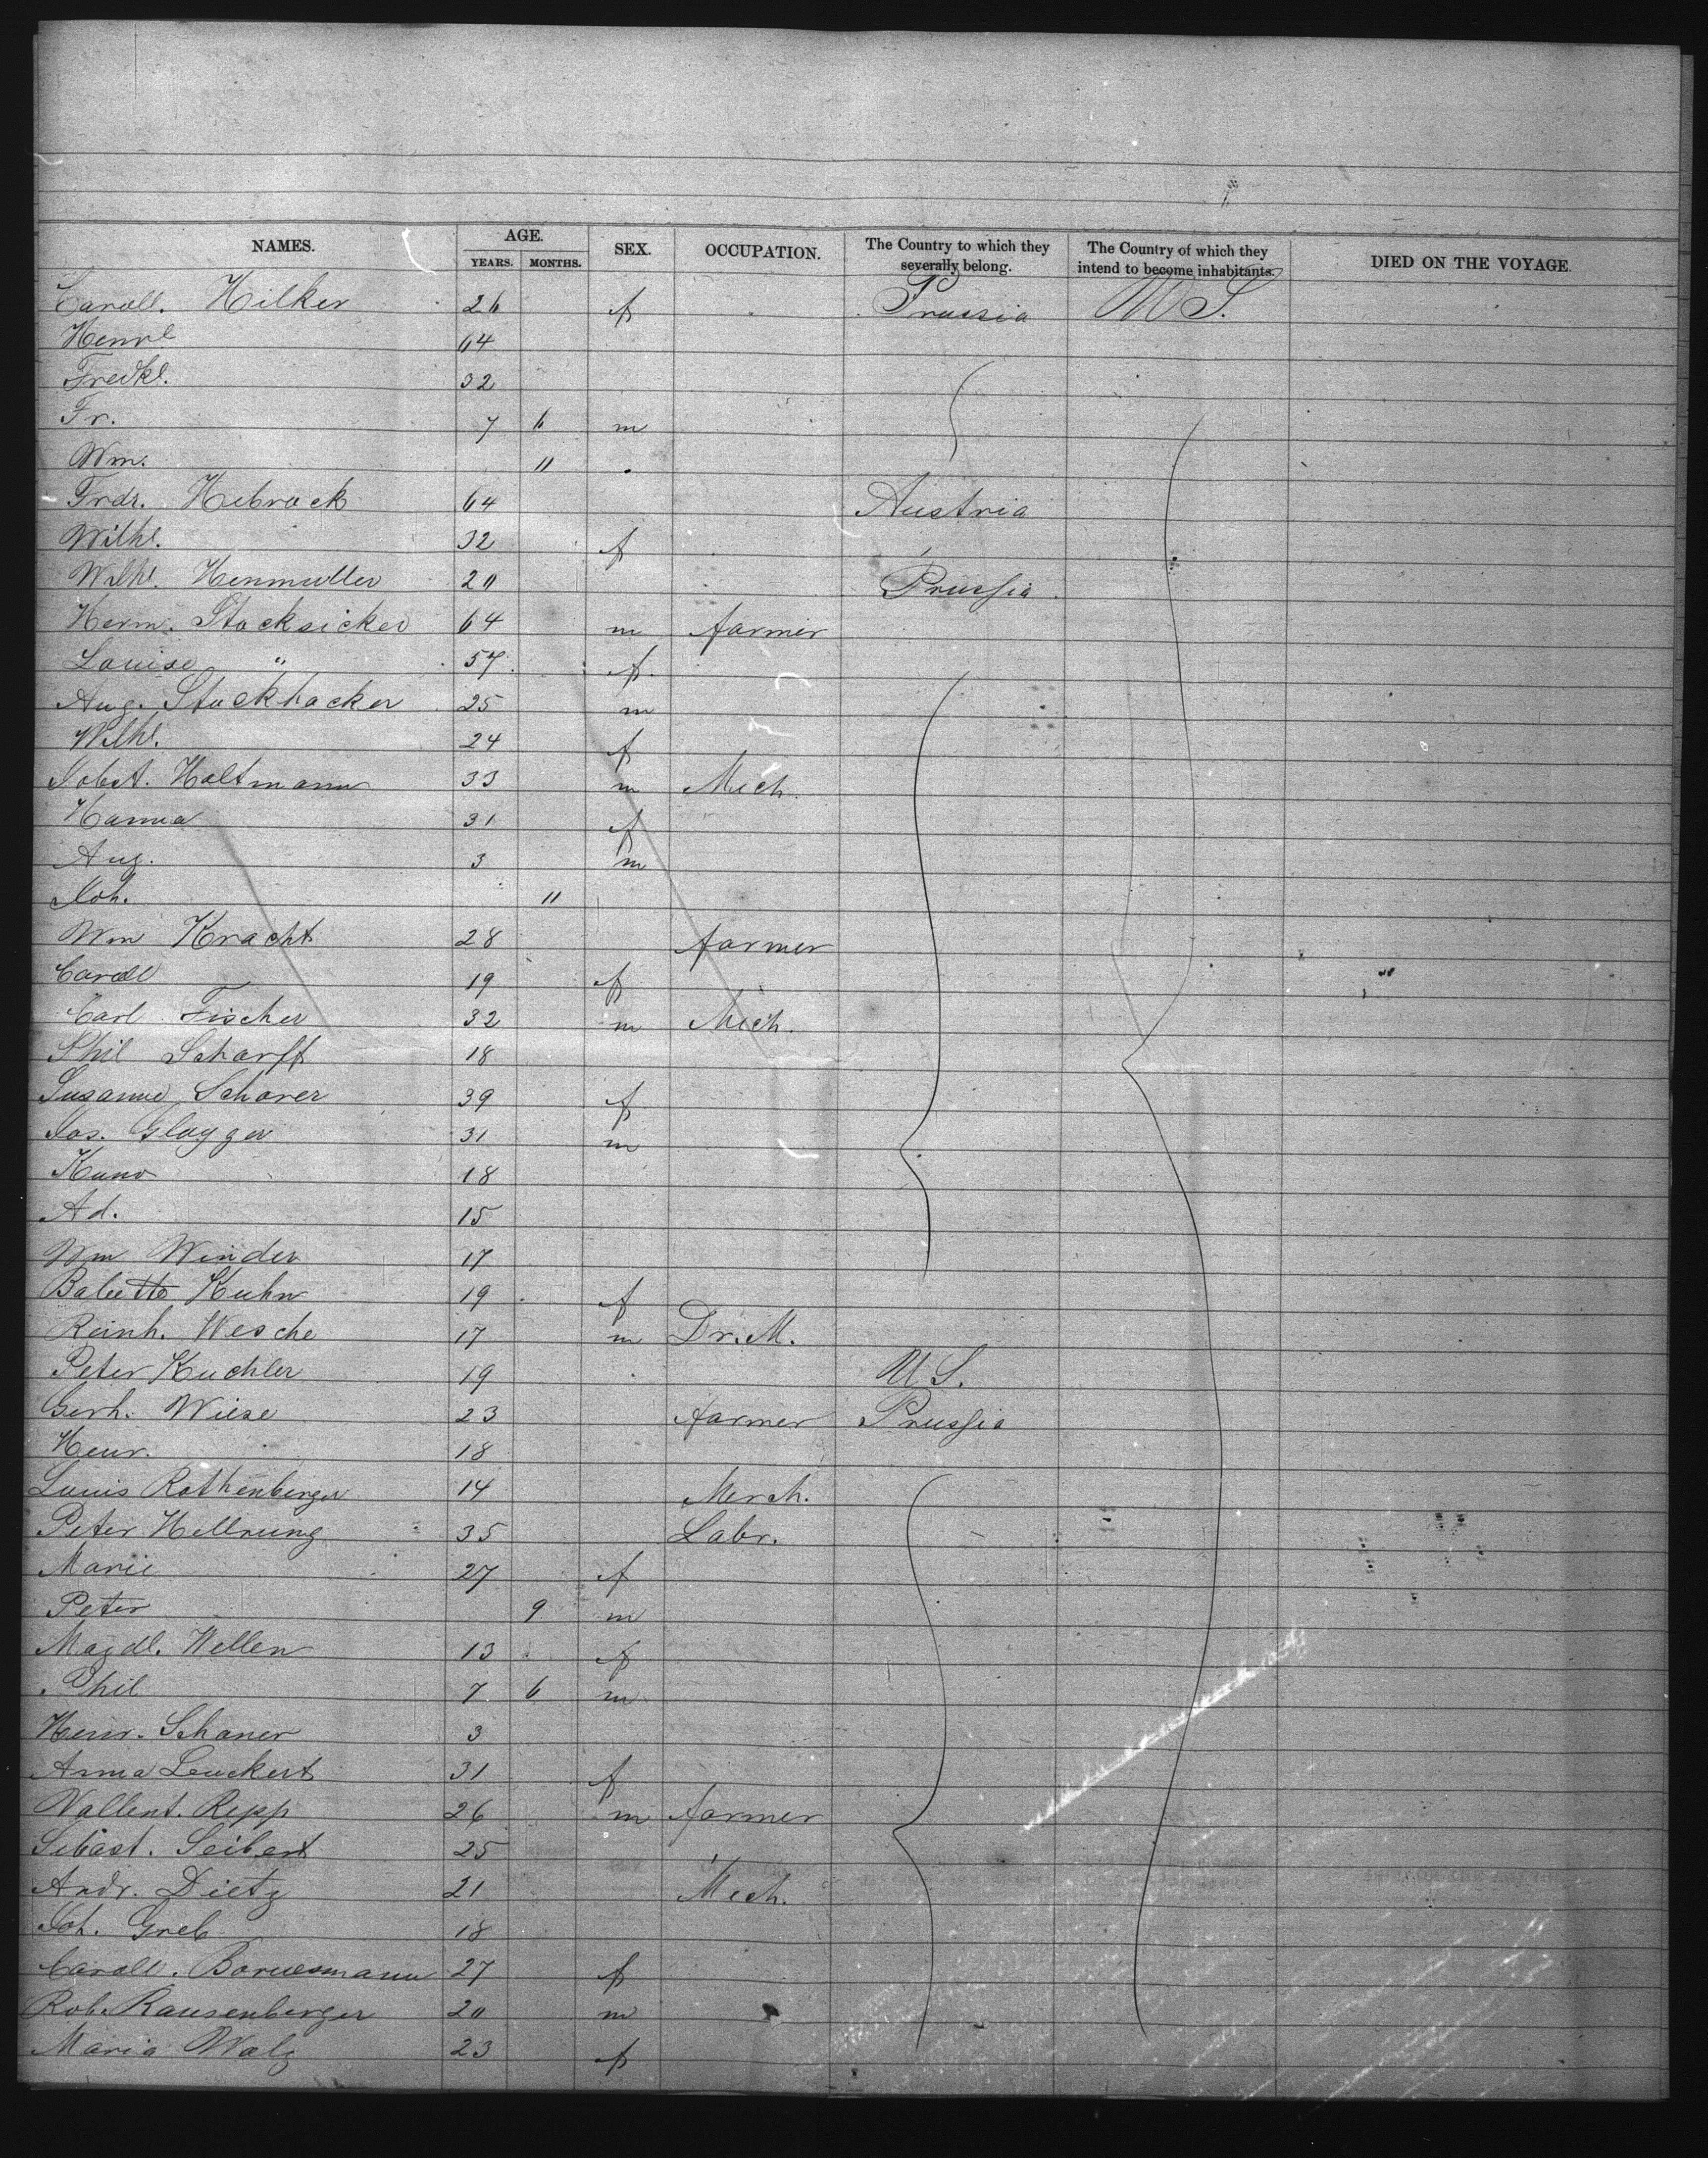 NAMES. AGE. YEARS. MONTHS. SEX. OCCUPATION. The Country to which they severally belong. The Country of which they intend to become inhabitants. DIED ON THE VOYAGE.
Caroll. Hilker 26 f Prussia U S.
Henrl 64
Fredkl. 32
Fr. 7 6 m
Wm. 11
Frdr. Hebrock 64 Austria
Wilhl. 32 f
Wilhl. Henmuller 20 Prussia
Herm. Stocksicker 64 m farmer
Louise " 57 f
Aug. Stuckhacker 25 m
Wilhl. 24 f
Jobst. Holtmann 33 m Mech.
Hanna 31 f
Aug. 3 m
Joh. 11
Wm Kracht 28 farmer
Caroll 19 f
Carl Fischer 32 m Mech.
Phil Scharff 18
Susanne Scharer 39 f
Jos. Glogger 31 m
Kuno 18
Ad. 15
Wm Winder 17
Babette Kuhn 19 f
Reinh. Wesche 17 m Dr. M.
Peter Kuchler 19 U S.
Gerh. Wiese 23 farmer Prussia
Henr. 18
Louis Rothenberger 14 Merch.
Peter Hellrung 35 Labr.
Marie 27 f
Peter 9 m
Magdl. Wellen 13 f
Phil 7 6 m
Henr. Schaner 3
Anna Leuckert 31 f
Vallent. Repp 26 m farmer
Sebast. Seibert 25
Andr. Dietz 21 Mech.
Joh. Greb 18
Caroll. Bornesmann 27 f
Rob. Rausenberger 20 m
Maria Walz 23 f